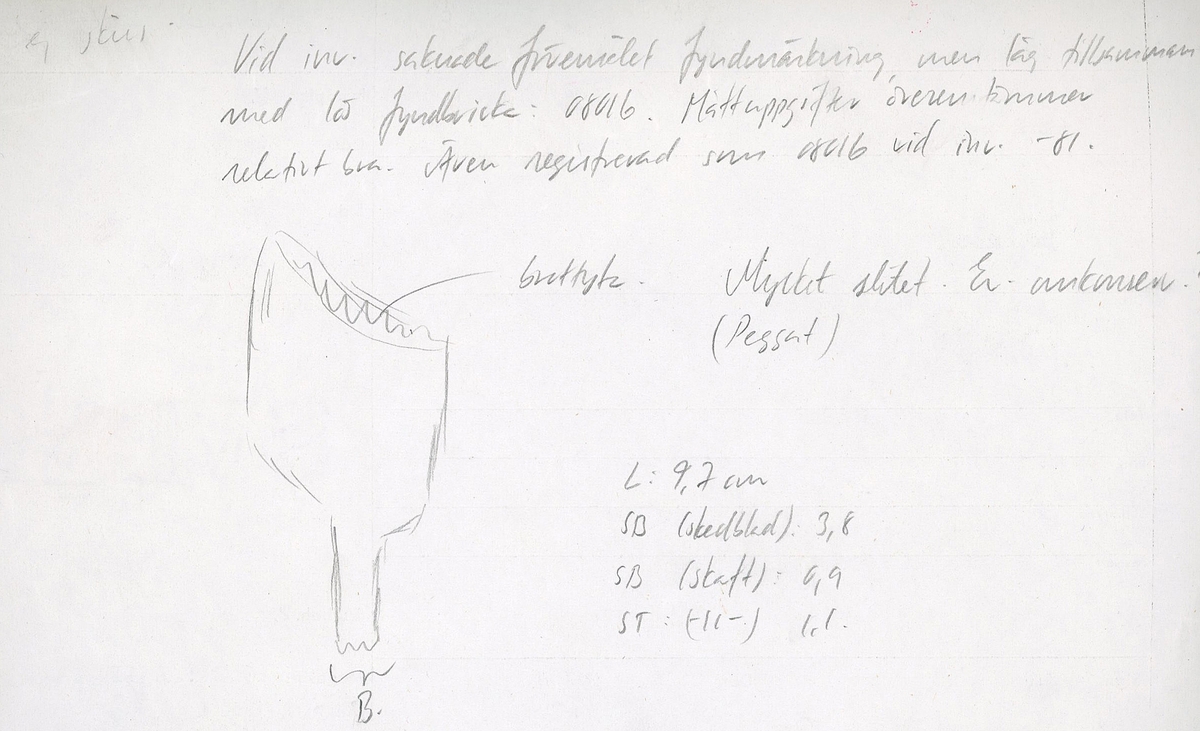 ej
Vid inv. saknade föremålet fyndmärkning, men låg tillsamman
med lös fyndbricka: 08016. Måttuppgifter överenskommer
relativt bra. Även registrerad som 08016 vid inv. -81.
brottyta. Mycket slitet. Ev.
L: 9,7 cm
SB (skedblad): 3,8
SB (skaft): 0,9
ST: (-11-) 1,1.
B.